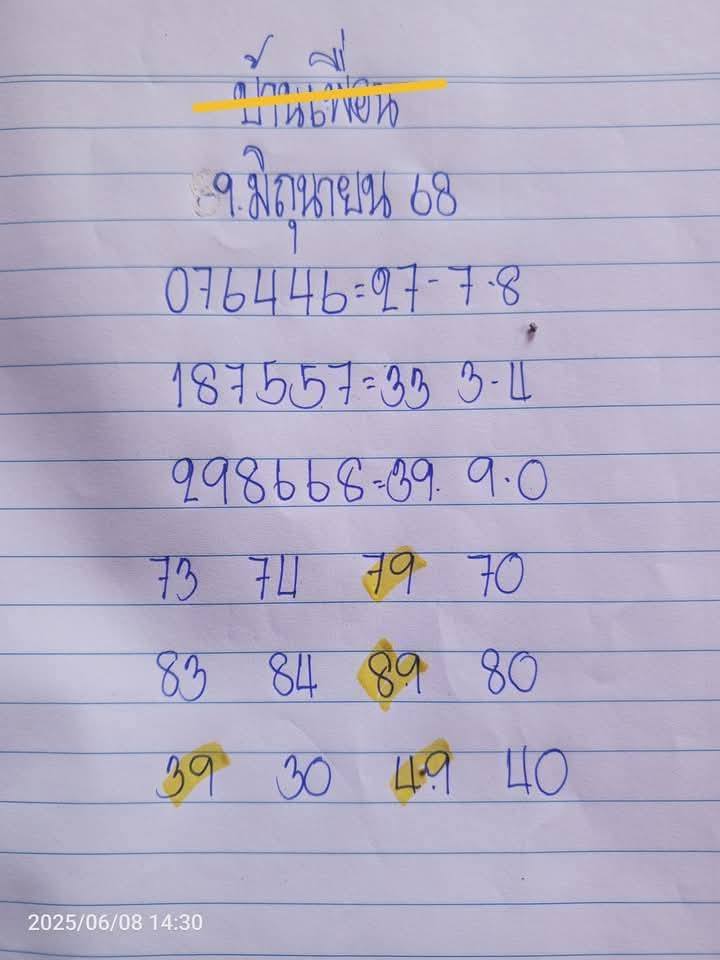 บ้านเพื่อน
9.มิถุนายน 68
076446=27-7.8
187557=33 3-4
298668=39. 9.0
73 74 79 70
83 84 89 80
39 30 49 40
2025/06/08 14:30